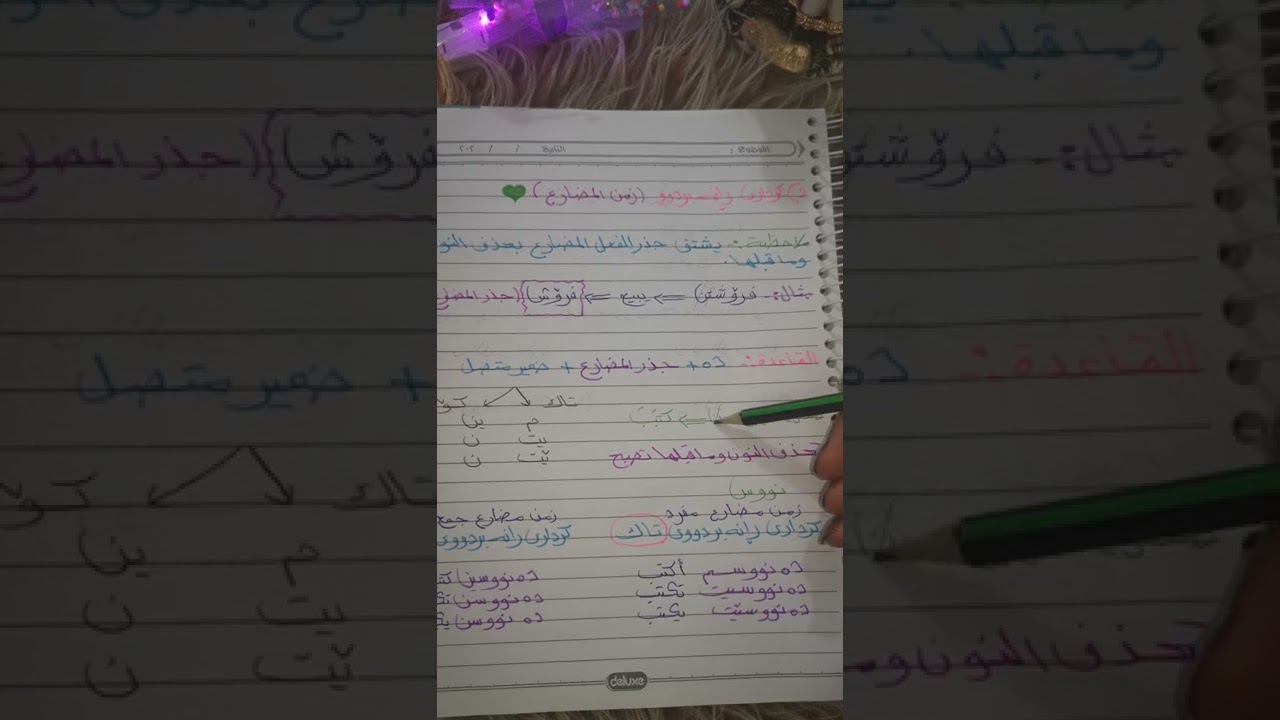 الموضوع : التاريخ / / ٢٠٢
كرداری رانه بردوو (زمن المضارع)
ملاحظة:- يشتق جذر الفعل المضارع بحذف النو
وما قبلها.
مثال:- فرۆشتن ⇐ يبيع ⇐ فرۆش (جذر المضار
القاعدة:- ده + جذر المضارع + ضمير متصل
تاك كۆ
م ين
يت ن
ێت ن
كتب
تحذف النون وما قبلها تصبح
نووس
زمن مضارع مفرد زمن مضارع جمع
كرداری رانه بردووی تاك كرداری رانه بردووی
ده نووسم أكتب ده نووسين
ده نووسيت تكتب ده نووسن
ده نووسێت يكتب ده نووسن
deluxe